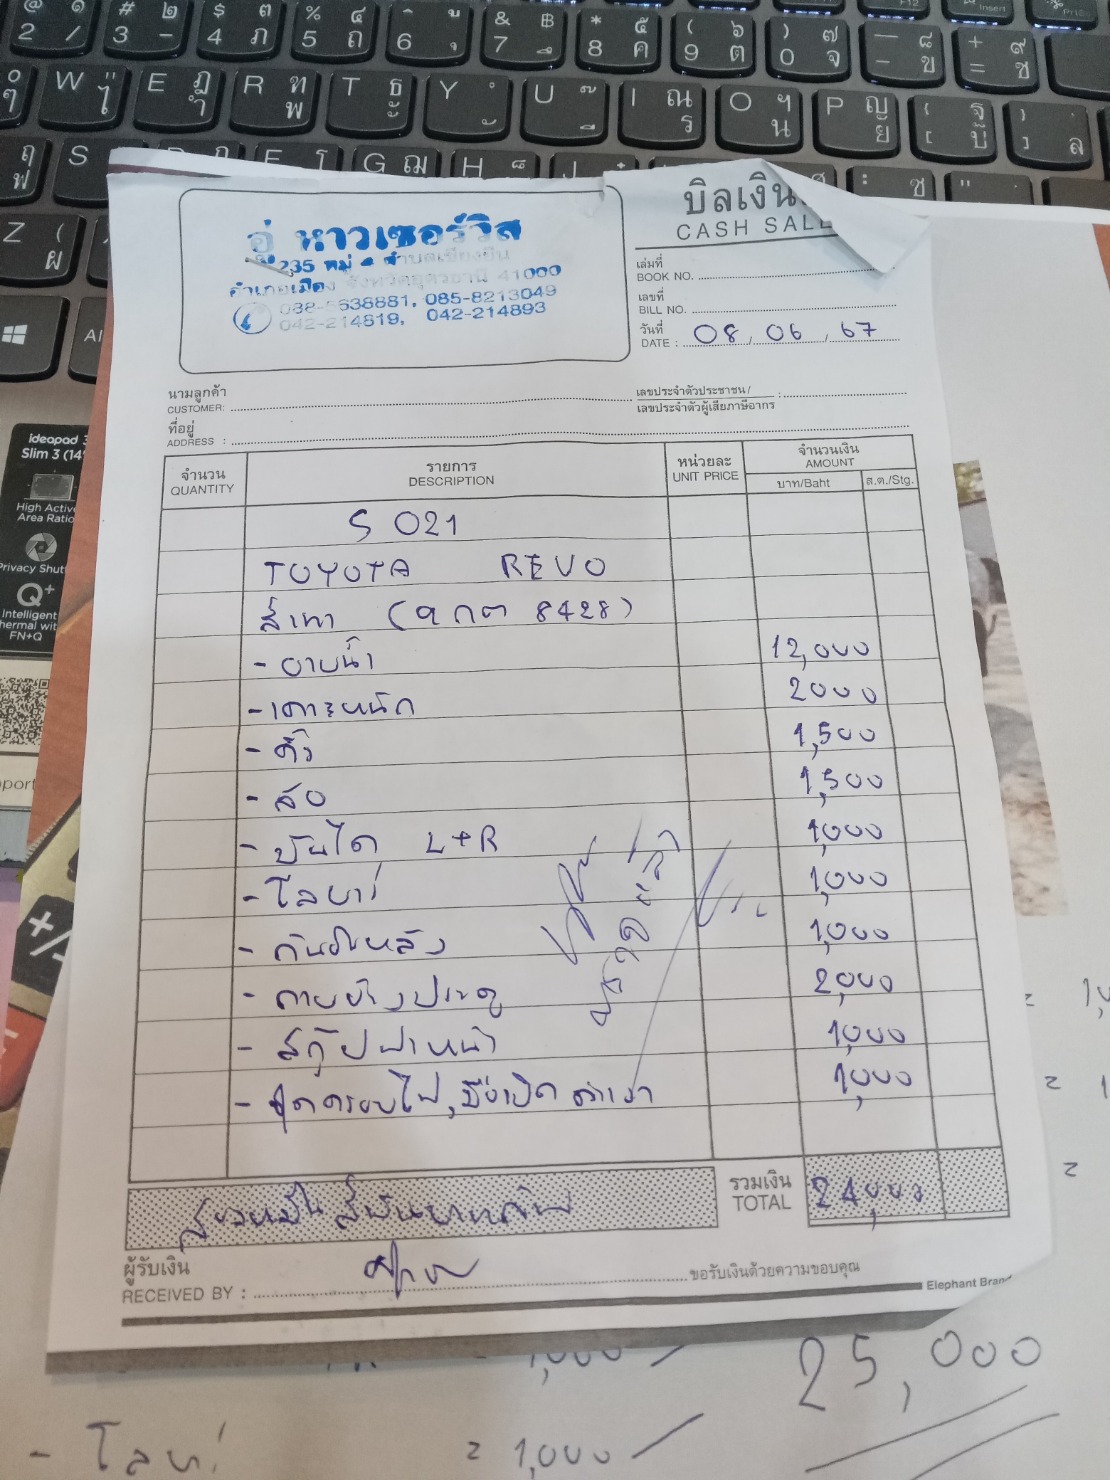 บิลเงิน
CASH SALE
อู่ หาวเซอร์วิส
235 หมู่ ตำบลเชียงยืน
อำเภอเมือง จังหวัดอุดรธานี 41000
085-8213049
042-214819, 042-214893
เล่มที่
BOOK NO.
เลขที่
BILL NO.
วันที่
DATE : 08 / 06 / 67
นามลูกค้า
CUSTOMER:
เลขประจำตัวประชาชน /
เลขประจำตัวผู้เสียภาษีอากร
ที่อยู่
ADDRESS :
จำนวน รายการ หน่วยละ จำนวนเงิน
QUANTITY DESCRIPTION UNIT PRICE AMOUNT
บาท/Baht ส.ต./Stg.
S 021
TOYOTA REVO
สีเทา (9 กต 8428)
- ยาบน้ำ 12,000
- เคาะหนัก 2000
- คิ้ว 1,500
- ล้อ 1,500
- บันได L+R 1,000
- โลบาร์ 1,000
- กันชนหลัง 1,000
- กาบข้างประตู 2,000
- สกู๊ปฝาหน้า 1,000
- ชุดครอบไฟ, มือเปิด ดำเงา 1,000
รวมเงิน
TOTAL 24,000
ผู้รับเงิน
RECEIVED BY :
ขอรับเงินด้วยความขอบคุณ
Elephant Brand
1,000
25,000
- โลบาร์ = 1,000
ideapad 3
Slim 3 (14"
High Active
Area Ratio
Privacy Shut
Q+
Intelligent
Thermal with
FN+Q